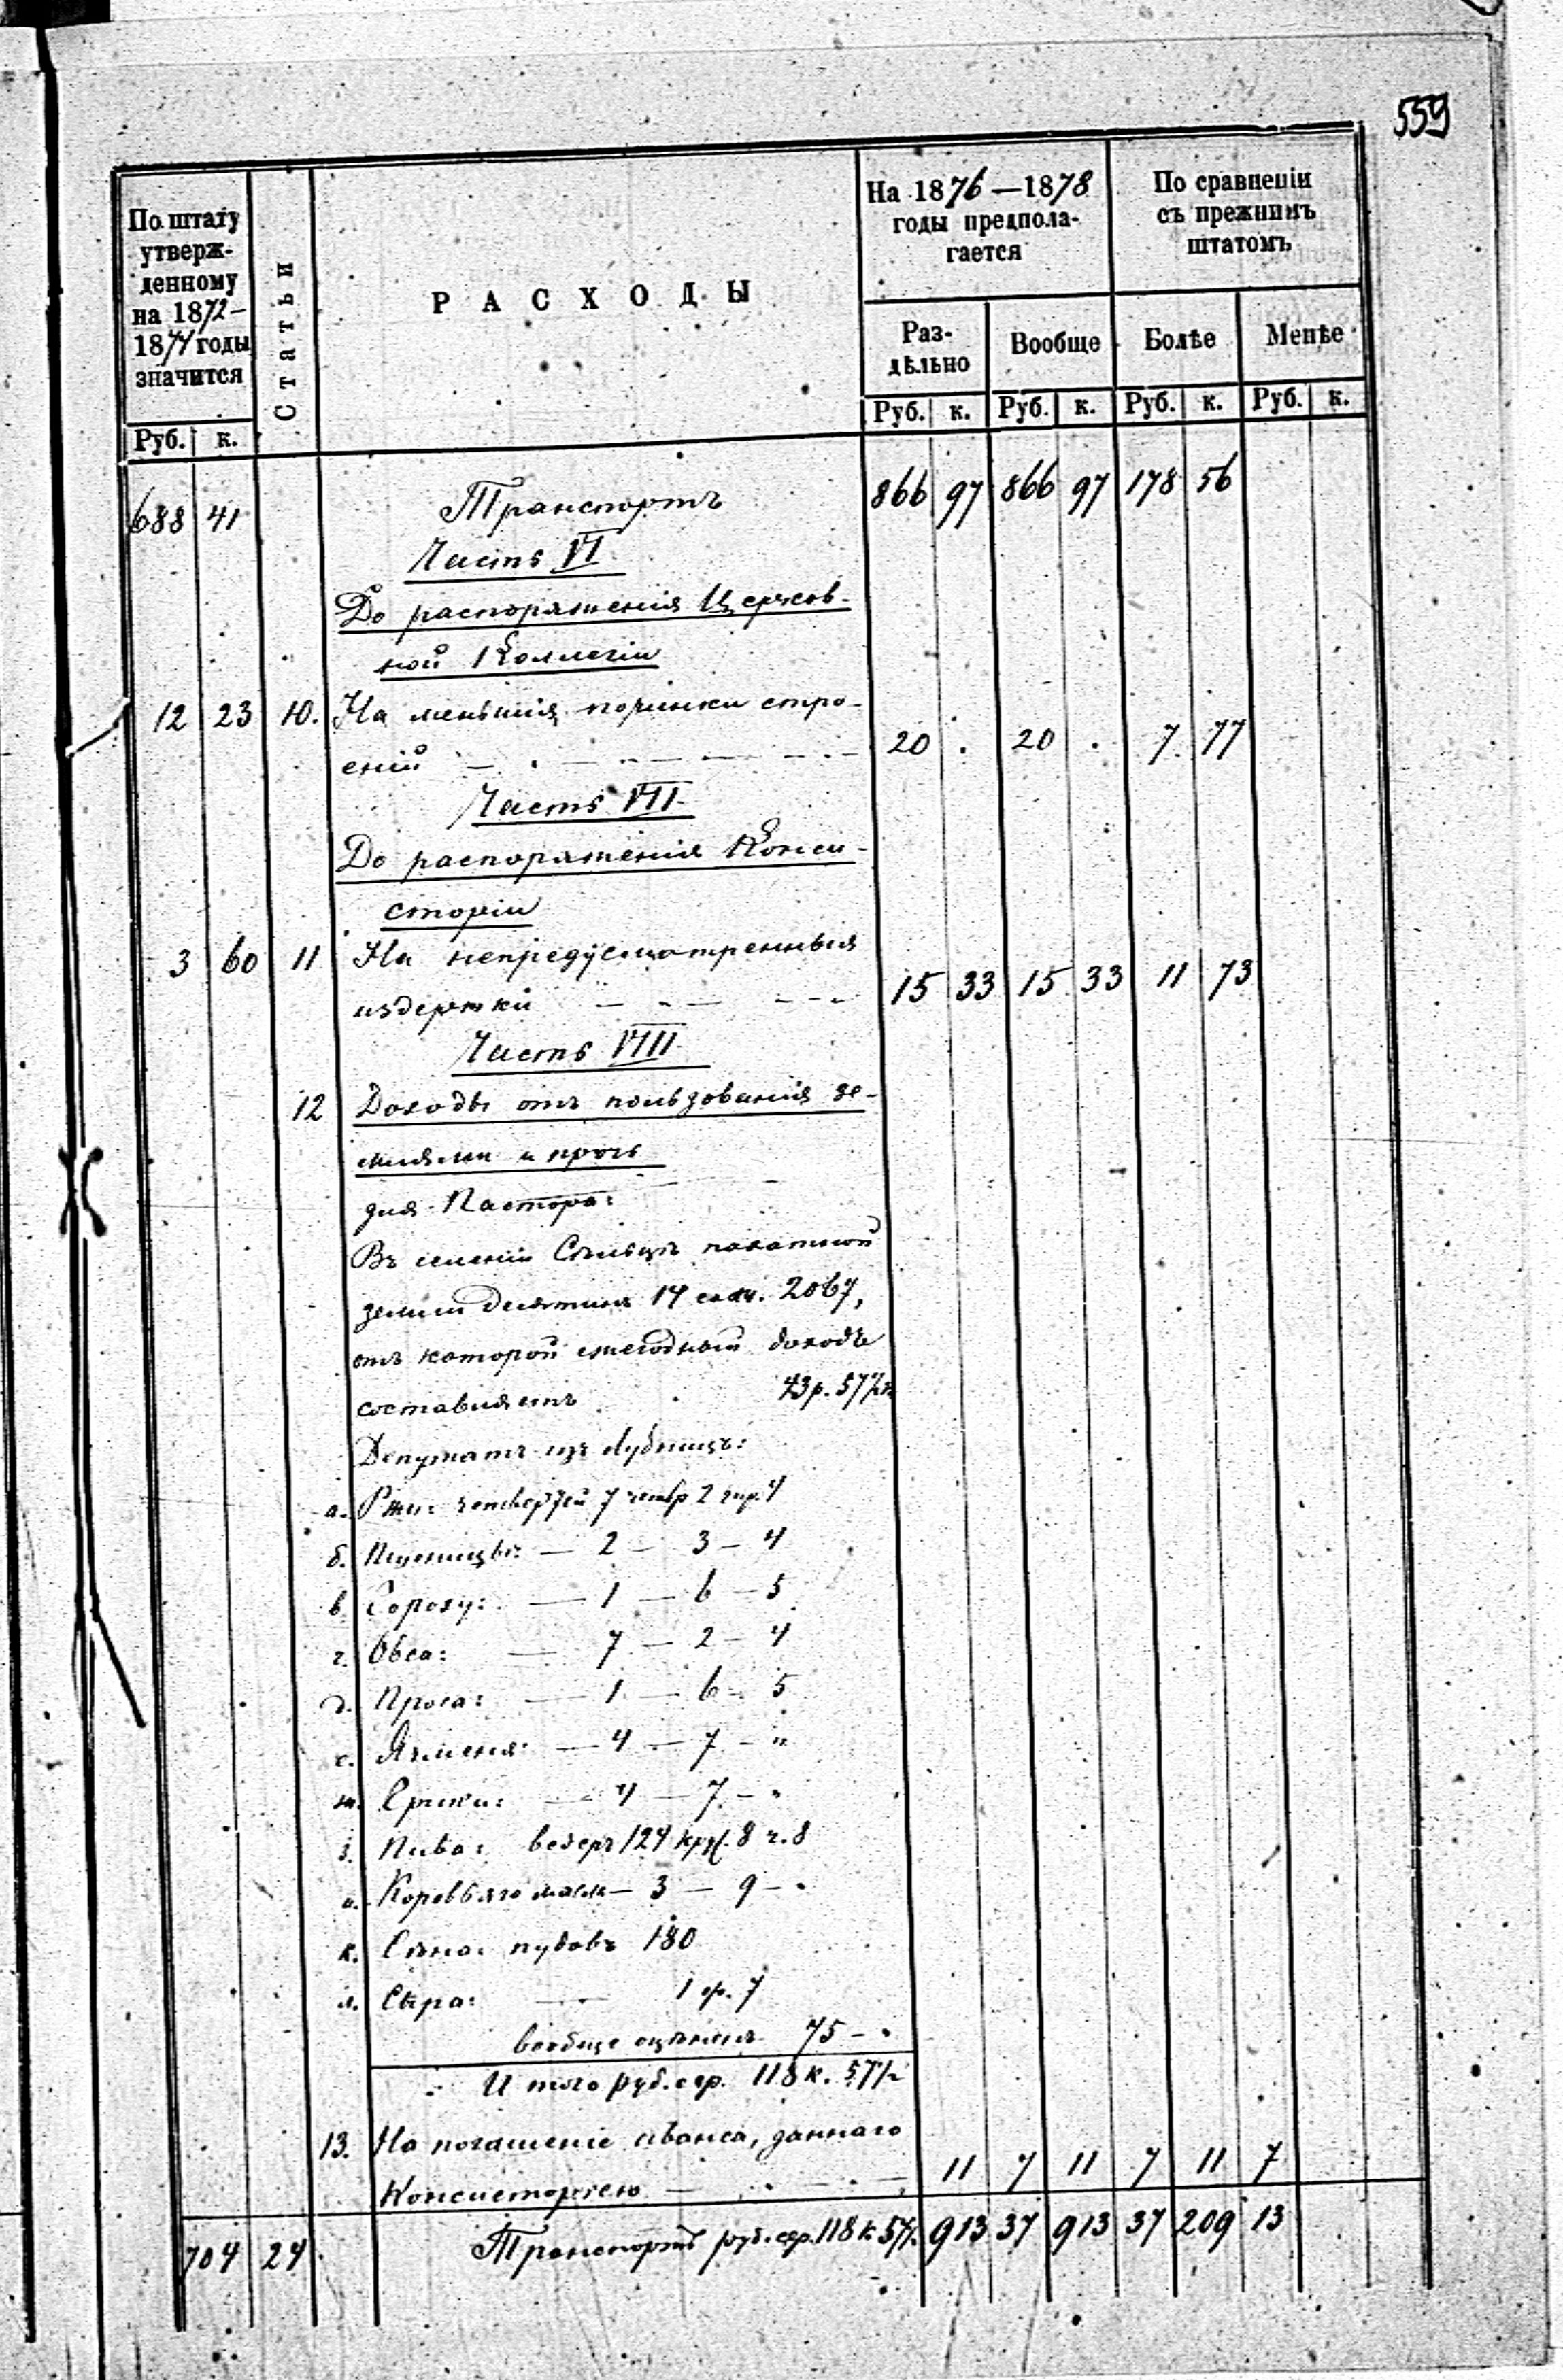 559
По штату
утверж-
денному
на 1872-
1874 годы
значится
Руб. к.
Статьи
РАСХОДЫ
На 1876—1878
годы предпола-
гается
Раз-
дѣльно
Вообще
Руб. к. Руб. к.
По сравненіи
съ прежнимъ
штатомъ
Болѣе Менѣе
Руб. к. Руб. к.
688 41 Транспортъ 866 97 866 97 178 56
Часть VI
До распоряженія Церков-
ной Коллегіи
12 23 10. На меньшія починки стро-
еній 20 . 20 . 7 77
Часть VII
До распоряженія Конси-
сторіи
3 60 11 На непредусмотренныя
издержки 15 33 15 33 11 73
Часть VIII
12 Доходы отъ пользованія зе-
млями и проч
для Пастора:
Въ селеніи пахатной
земли десятинъ 14 саж. 2067,
отъ которой ежегодный доходъ
составляетъ 43 р. 57½ к
Депутатъ изъ
а. Ржи: четвертей 7 четвр 2 гар. 4
б. Пшеницы: — 2 — 3 — 4
в. Гороху: — 1 — 6 — 5
г. Овса: — 7 — 2 — 4
д. Проса: — 1 — 6 — 5
е. Ячменя: — 4 — 7 — "
ж. Гречки: — 4 — 7 — "
з. Пива: ведеръ 124 круж. 8 ч. 8
и. Коровьяго масла — 3 — 9 — "
к. Сѣна: пудовъ 180
л. Сыра: — 1 ф. 7
вообще оцѣнены 75 — "
Итого руб. сер. 118 к. 57½
13. На погашеніе аванса, даннаго
Консисторіею 11 7 11 7 11 7
704 24 Транспортъ руб. сер. 118 к 57½ 913 37 913 37 209 13